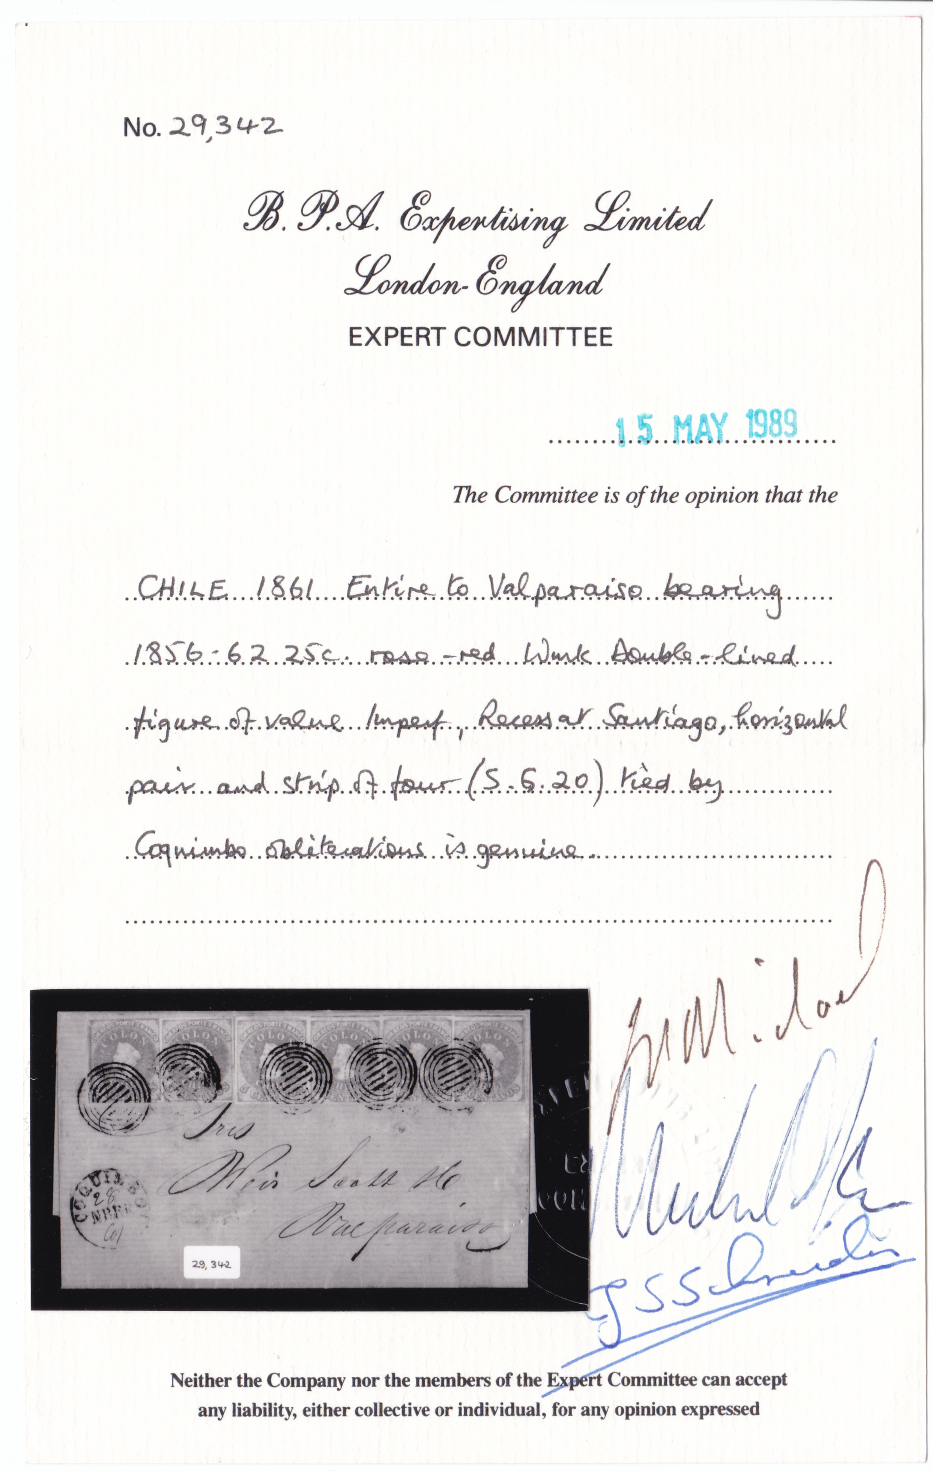 No. 29,342
B. P. A. Expertising Limited
London-England
EXPERT COMMITTEE
15 MAY 1989
The Committee is of the opinion that the
CHILE 1861 Entire to Valparaiso bearing
1856-62 25c. rose-red Wmk Double-lined
figure of value Imperf, Recess at Santiago, horizontal
pair and strip of four (S.G.20) tied by
Coquimbo obliterations is genuine.
COLON COLON COLON COLON COLON COLON
Sres
Weir Scott
Valparaiso
COQUIMBO
28
61
29,342
Schneider
Neither the Company nor the members of the Expert Committee can accept
any liability, either collective or individual, for any opinion expressed